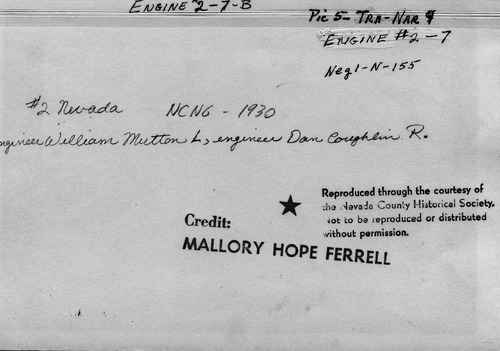 ENGINE 2-7-B
Pic 5- TRA-NAR 9
ENGINE #2-7
Neg 1-N-155
#2 Nevada NCNG - 1930
ngineer William Mutton L, engineer Dan Coughlin R.
Reproduced through the courtesy of
the Nevada County Historical Society.
Not to be reproduced or distributed
without permission.
Credit:
MALLORY HOPE FERRELL